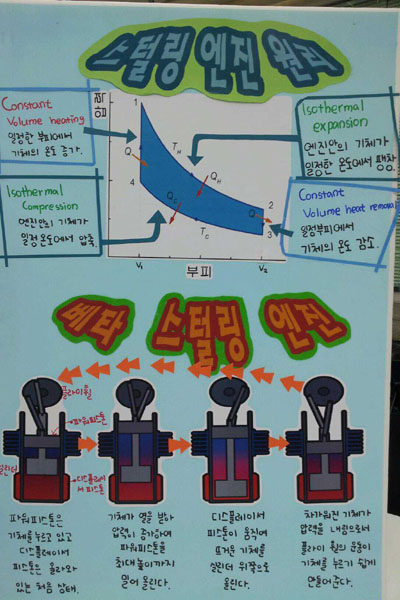 스털링 엔진 원리
Constant
Volume heating
일정한 부피에서
기체의 온도 증가.
Isothermal
Compression
엔진안의 기체가
일정 온도에서 압축.
압력
1
Q
4
T_H
Q_H
Q_C
T_C
2
Q
3
V₁
부피
V₂
Isothermal
expansion
엔진안의 기체가
일정한 온도에서 팽창
Constant
Volume heat removal
일정부피에서
기체의 온도 감소.
베타 스털링 엔진
플라이휠
파워피스톤
실린더
디스플레이
서 피스톤
파워피스톤은
기체를 누르고 있고
디스플레이서
피스톤은 올라와
있는 처음 상태.
기체가 열을 받아
압력이 증가하여
파워피스톤을
최대 높이까지
밀어 올린다.
디스플레이서
피스톤이 움직여
뜨거운 기체를
실린더 위쪽으로
올린다.
차가워진 기체가
압력을 내림으로서
플라이 휠의 운동이
기체를 누르기 쉽게
만들어준다.